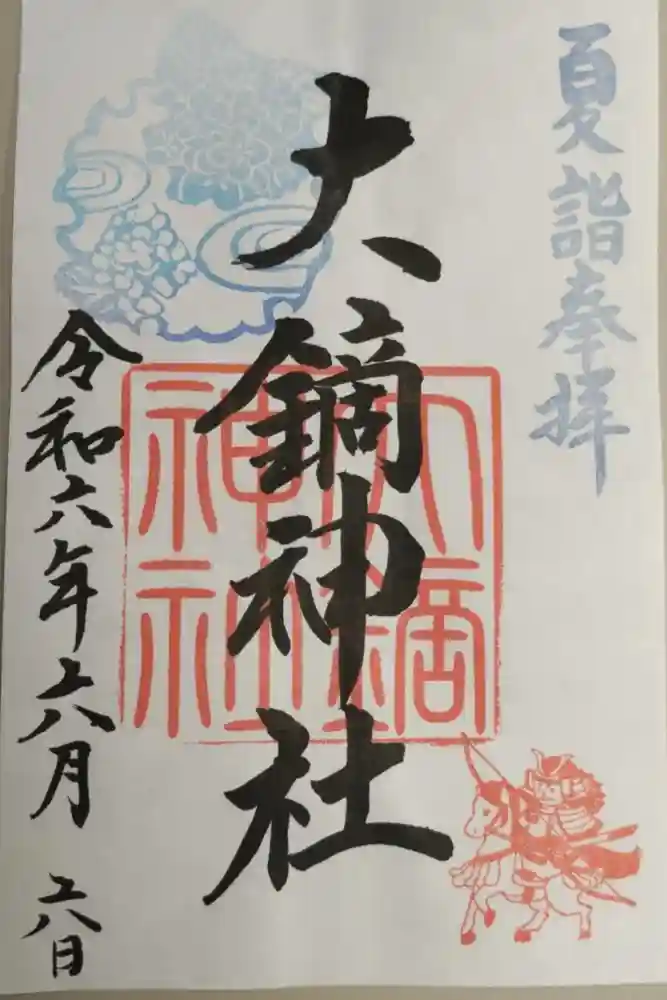 夏詣奉拝
大鏑神社
大鏑神社
令和六年六月 六日